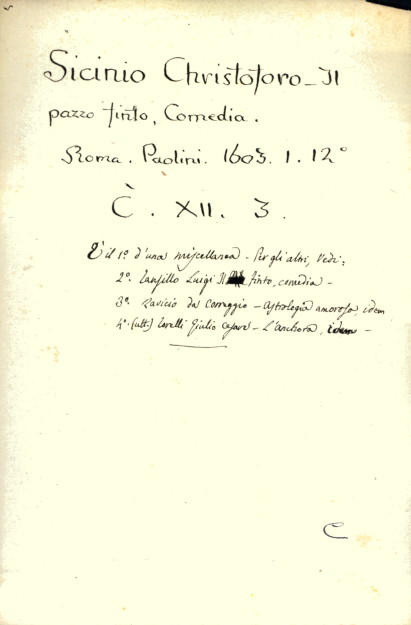 Sicinio Christoforo - Il
pazzo finto, Comedia.
Roma. Paolini. 1603. 1. 12°
C. XII. 3.
È il 1° d'una miscellanea - Per gli altri, Vedi:
2°. Tansillo Luigi Il finto, comedia -
3°. Zavicio da Correggio - Astrologia amorosa, idem
4°. (ult.) Torelli Giulio Cesare - L'anchora, idem -
C